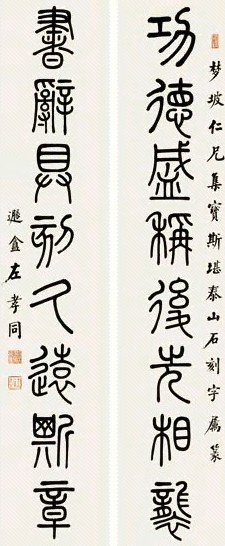 梦坡仁兄集寶斯堪泰山石刻字屬篆
功德盛稱後先相襲
書辭具刻久遠斯章
遯盦左孝同